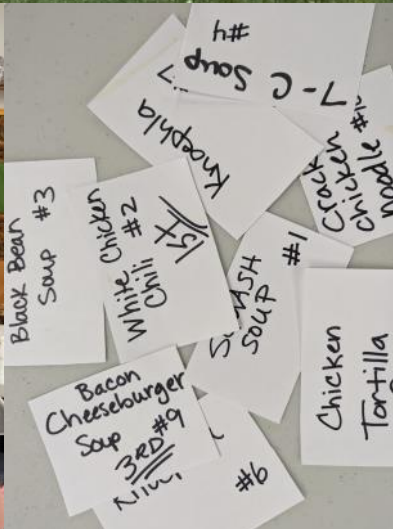 7-C Soup
#4
Knoephla
7
Crack
chicken
noodle
Black Bean
Soup #3
White Chicken
#2
Chili
1st
#1
SOUP
Chicken
Tortilla
Bacon
Cheeseburger
Soup #9
3RD
#6